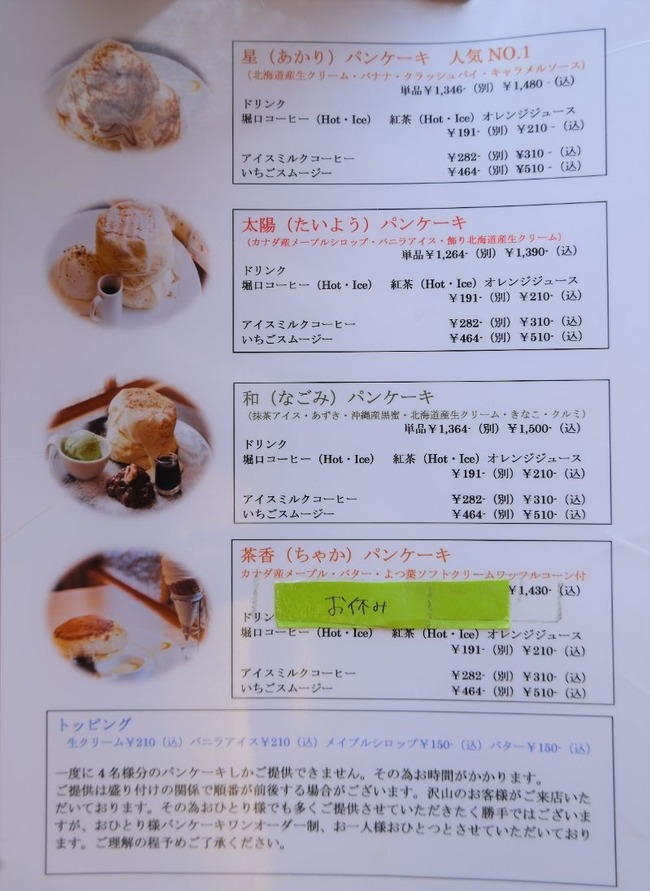 星（あかり）パンケーキ　人気 NO.1
（北海道産生クリーム・バナナ・クラッシュパイ・キャラメルソース）
単品￥1,346-（別）￥1,480 -（込）
ドリンク
堀口コーヒー（Hot・Ice）　紅茶（Hot・Ice）オレンジジュース
￥191-（別）￥210 -（込）
アイスミルクコーヒー　￥282-（別）¥310 -（込）
いちごスムージー　￥464-（別）¥510-（込）
太陽（たいよう）パンケーキ
（カナダ産メープルシロップ・バニラアイス・飾り北海道産生クリーム）
単品￥1,264-（別）￥1,390-（込）
ドリンク
堀口コーヒー（Hot・Ice）　紅茶（Hot・Ice）オレンジジュース
￥191-（別）￥210-（込）
アイスミルクコーヒー　￥282-（別）￥310-（込）
いちごスムージー　￥464-（別）￥510-（込）
和（なごみ）パンケーキ
（抹茶アイス・あずき・沖縄産黒蜜・北海道産生クリーム・きなこ・クルミ）
単品￥1,364-（別）￥1,500-（込）
ドリンク
堀口コーヒー（Hot・Ice）　紅茶（Hot・Ice）オレンジジュース
￥191-（別）￥210-（込）
アイスミルクコーヒー　￥282-（別）￥310-（込）
いちごスムージー　￥464-（別）￥510-（込）
茶香（ちゃか）パンケーキ
カナダ産メープル・バター・よつ葉ソフトクリームワッフルコーン付
￥1,430-（込）
お休み
ドリン
堀口コーヒー（Hot・Ice）　紅茶（Hot・Ice）オレンジジュース
￥191-（別）￥210-（込）
アイスミルクコーヒー　￥282-（別）￥310-（込）
いちごスムージー　￥464-（別）￥510-（込）
トッピング
生クリーム￥210（込）バニラアイス￥210（込）メイプルシロップ￥150-（込）バター￥150-（込）
一度に４名様分のパンケーキしかご提供できません。その為お時間がかかります。
ご提供は盛り付けの関係で順番が前後する場合がございます。沢山のお客様がご来店いた
だいております。その為おひとり様でも多くご提供させていただきたく勝手ではございま
すが、おひとり様パンケーキワンオーダー制、お一人様おひとつとさせていただいており
ます。ご理解の程予めご了承ください。